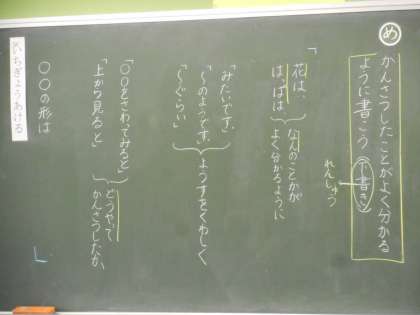 め
かんさつしたことがよく分かる
ように書こう(下書き)
れんしゅう
「花は、
は、ぱは
なんのことかが
よく分かるように
「みたいです。
「〜のようです。
「〜ぐらい」
ようすをくわしく
「〇〇をさわってみると」
「上から見ると」
どうやって
かんさつしたか。
〇〇の形は
いちぎょうあける